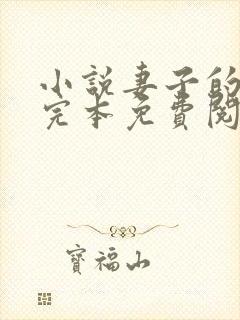 小説妻子的
完本免費閱
寶福山